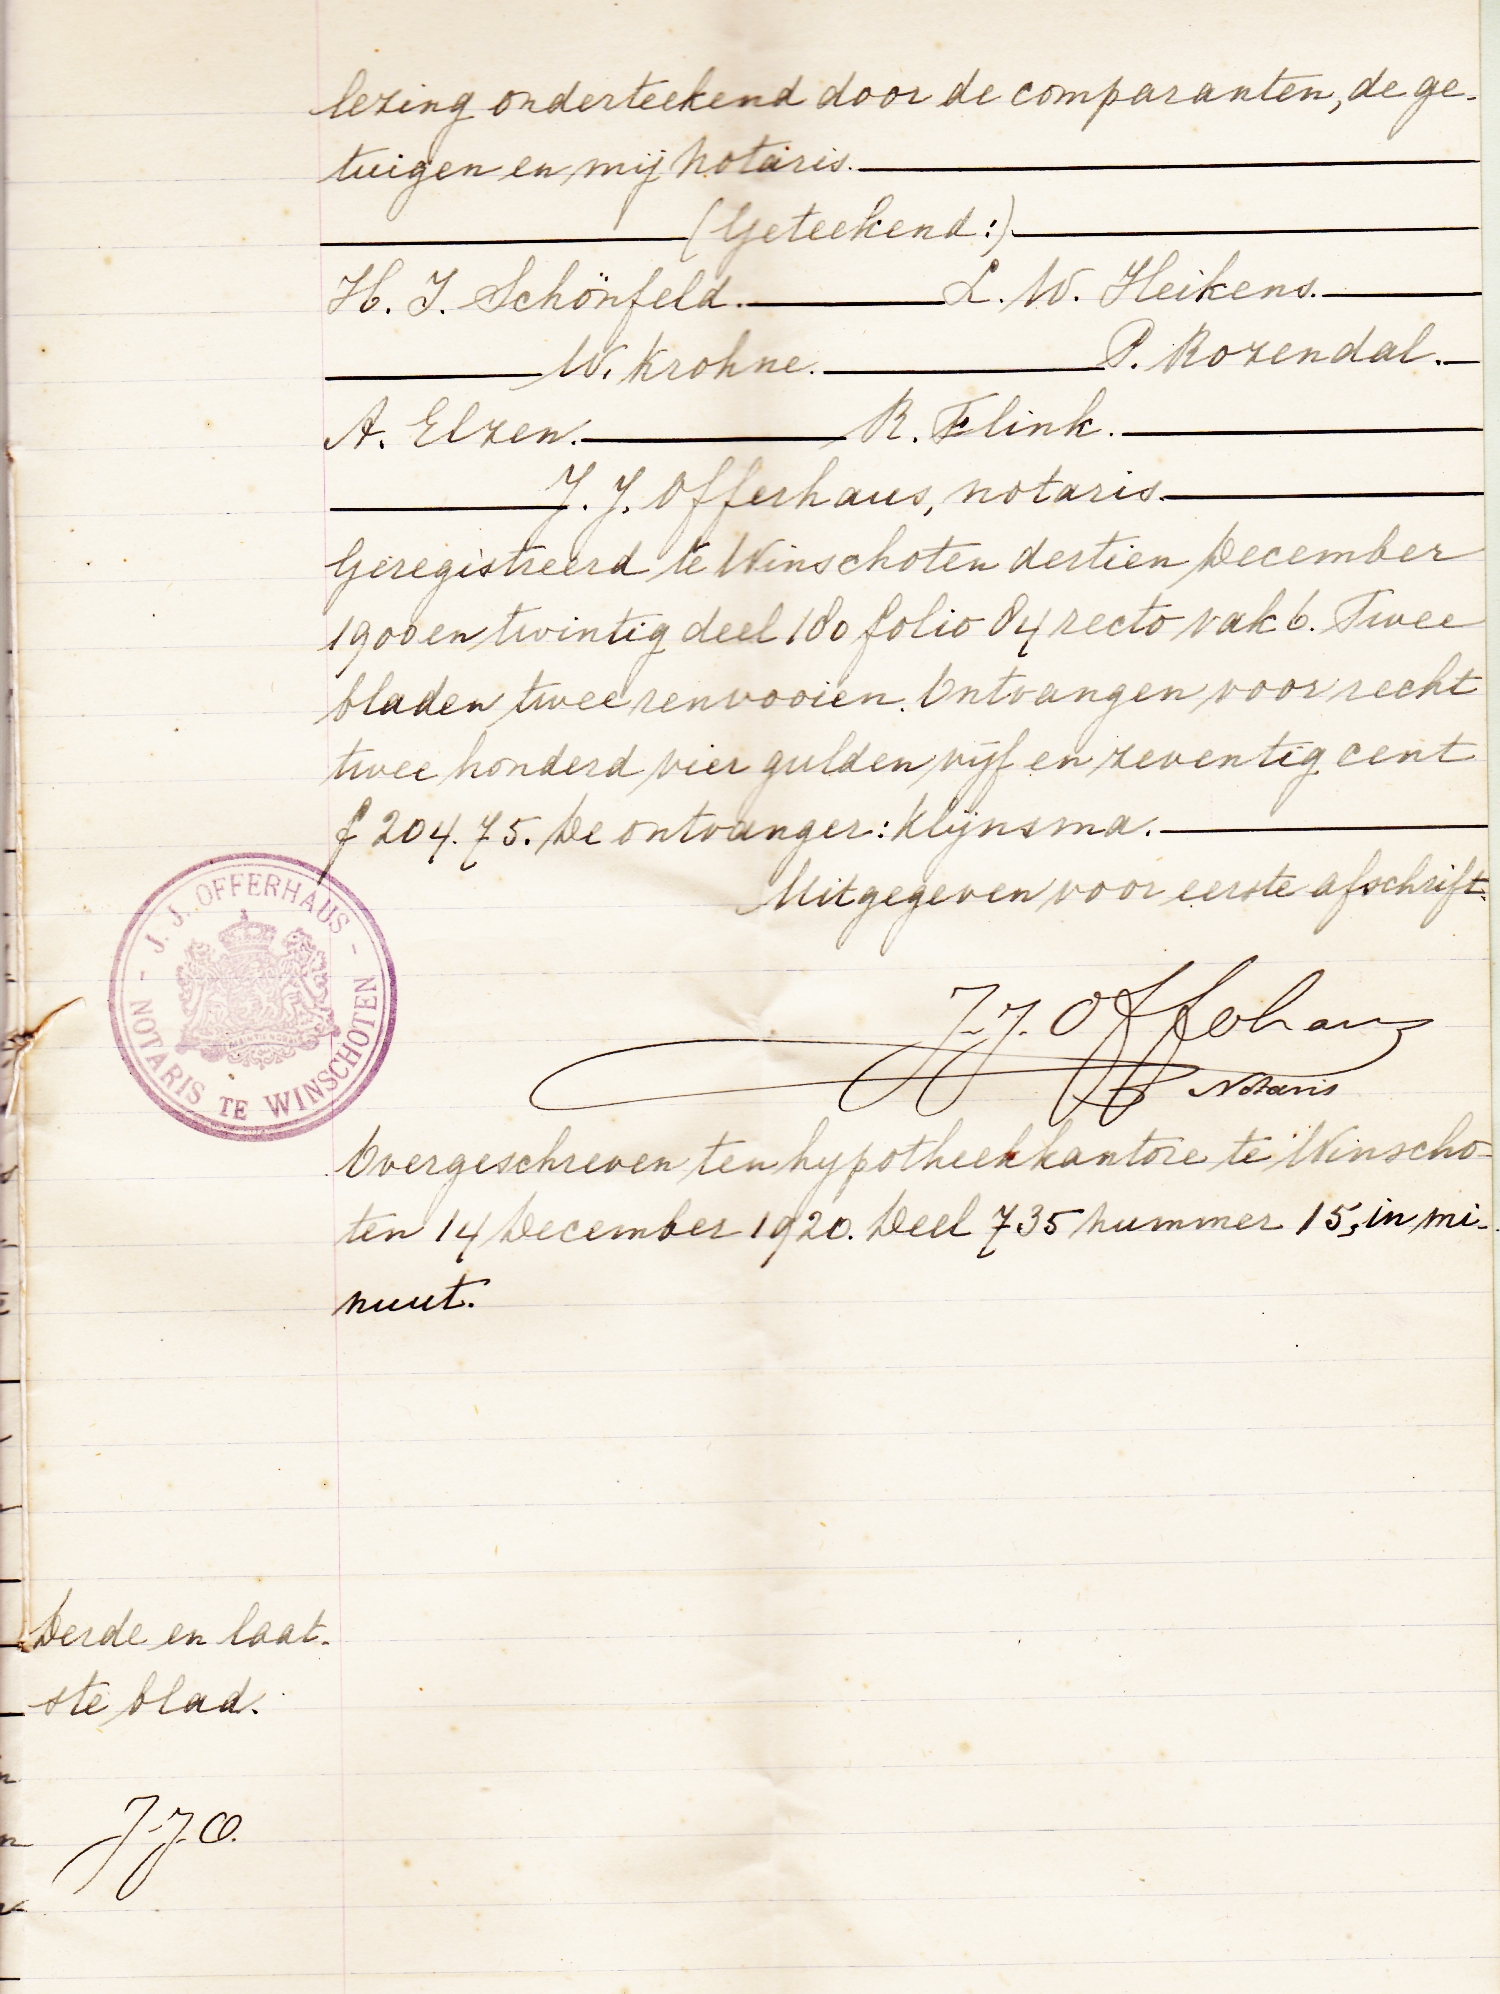 lezing onderteekend door de comparanten, de ge-
tuigen en mij notaris.
(Geteekend:)
H. J. Schönfeld. L. W. Heikens.
W. Krohne. P. Rozendal.
A. Elzen. R. Flink.
J. J. Offerhaus, notaris.
Geregistreerd te Winschoten dertien December
1900 en twintig deel 180 folio 84 recto vak 6. Twee
bladen twee renvooien. Ontvangen voor recht
twee honderd vier gulden vijf en zeventig cent
f 204.75. De ontvanger: Klijnsma.
Uitgegeven voor eerste afschrift.
- J. J. OFFERHAUS -
NOTARIS TE WINSCHOTEN
J. J. Offerhaus
Notaris
Overgeschreven ten hypotheekkantore te Winscho-
ten 14 December 1920. Deel 735 nummer 15, in mi-
nuut.
Derde en laat-
ste blad.
J.J.O.